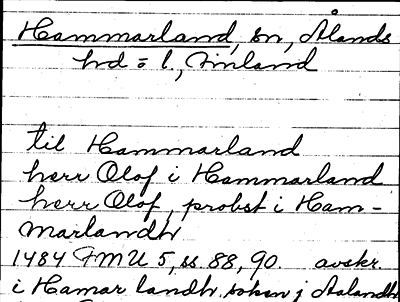 Hammarland, sn, Ålands
hd = l., Finland
til Hammarland
herr Olof i Hammarland
herr Olof, probst i Ham-
marlandh
1484 FMU 5, ss. 88, 90. avskr.
i Hamar landh soken j Aalandh